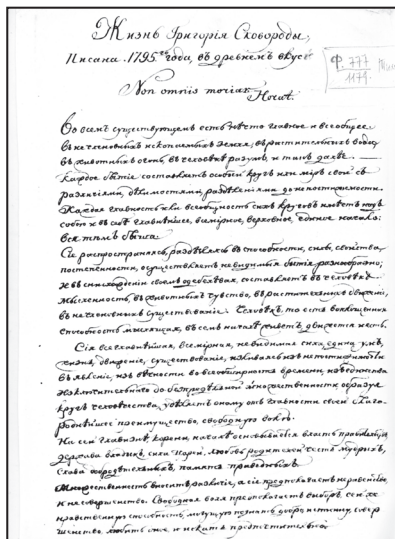 Жизнь Григорія Сковороды,
Писана 1795го года, въ древнемъ вкусѣ
Ф. 777
1179.
Non omnis moriar. Horat.
Во всемъ существующемъ есть нѣчто главное и всеобщее
въ нечленовныхъ ископаемыхъ земля, въ растительныхъ вода,
въ животныхъ огнь, въ человѣкѣ разумъ, и такъ далѣе.
Каждое бытіе составляетъ особый кругъ или міръ свой съ
различіями, дѣлимостями, раздѣленіями до непостижимости.
Каждая главность или всеобщность сихъ круговъ имѣетъ надъ
собою и въ себѣ главнѣйшее, всемірное, верховное единое начало:
вся тѣмъ быша
Сіе распространяясь, раздѣляясь въ способности, силы, свойства,
постепенности, осуществляетъ невидимыя бытія разнообразно;
и въ снисхожденіи своемъ составляетъ въ человѣкѣ
мысленность, въ животныхъ чувство, въ растительныхъ движеніе,
въ нечленовныхъ существованіе. Человѣкъ, то есть воплощенная
способность мыслящая, въ семъ началѣ живетъ движется и есть.
Сія всеглавнѣйшая, всемірная, невидимая сила едина, умъ,
жизнь, движеніе, существованіе, изливаясь изъ непостижимости
въ явленіе, изъ вѣчности во всеобширность времени, изъ единства
исключительнаго до безпредѣльной множественности образуя
кругъ человѣчества, удѣляетъ оному отъ главности своей благо-
роднѣйшее преимущество, свободную волю.
На сей главизнѣ, корени, началѣ основывается власть правительствъ,
держава владыкъ, сила царей, любовь родителей, честь мудрыхъ,
слава добродѣтельныхъ, память праведныхъ.
Множественность вноситъ различіе, а сіе предполагаетъ неравенство
и несовершенство. Свободная воля предполагаетъ выборъ, сей же
нравственную способность, могущую познать добро, истину, совер-
шенство, любить оное, и искать предпочтительно